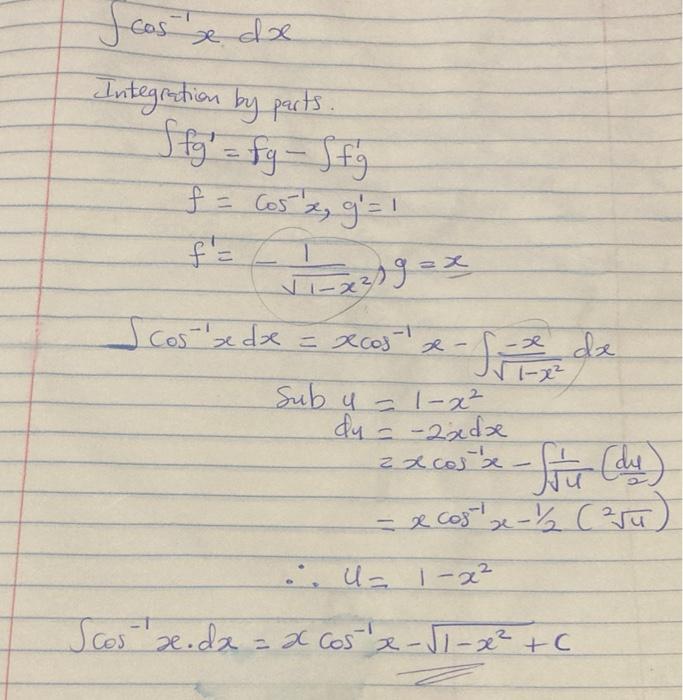 ∫cos⁻¹x dx
Integration by parts.
∫fg' = fg - ∫f'g
f = cos⁻¹x, g' = 1
f' = -1/√(1-x²), g = x
∫cos⁻¹x dx = xcos⁻¹x - ∫-x/√(1-x²) dx
Sub u = 1-x²
du = -2xdx
= x cos⁻¹x - ∫1/√u (du/2)
= x cos⁻¹x - ½ (2√u)
∴ u = 1-x²
∫cos⁻¹x.dx = x cos⁻¹x - √(1-x²) + C